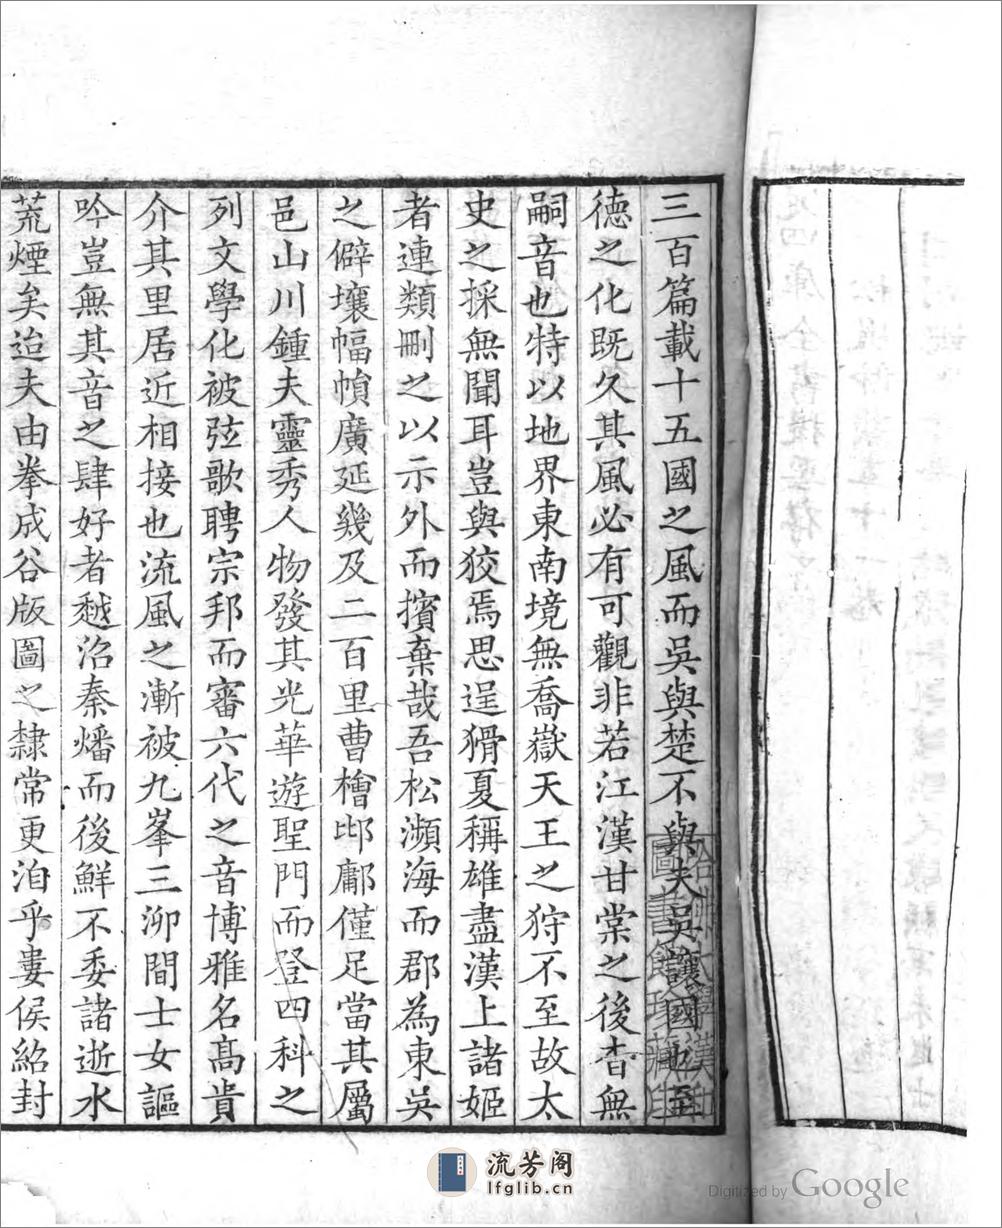 三百篇載十五國之風而吳與楚不與夫吳讓國也至
德之化既久其風必有可觀非若江漢甘棠之後杳無
嗣音也特以地界東南境無喬嶽天王之狩不至故太
史之採無聞耳豈與狡焉思逞猾夏稱雄盡漢上諸姬
者連類刪之以示外而擯棄哉吾松瀕海而郡為東吳
之僻壤幅幀廣延幾及二百里曹檜邶鄘僅足當其屬
邑山川鍾夫靈秀人物發其光華遊聖門而登四科之
列文學化被弦歌聘宗邦而審六代之音博雅名高貴
介其里居近相接也流風之漸被九峯三泖間士女謳
吟豈無其音之肆好者越治秦燔而後鮮不委諸逝水
荒煙矣迨夫由拳成谷版圖之隸常更洎乎婁侯紹封
哈佛大學漢和
圖書館珍藏印
流芳阁
lfglib.cn
Digitized by Google